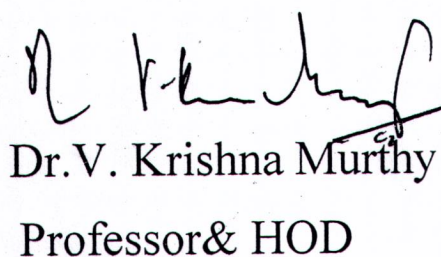 Dr.V. Krishna Murthy
Professor& HOD